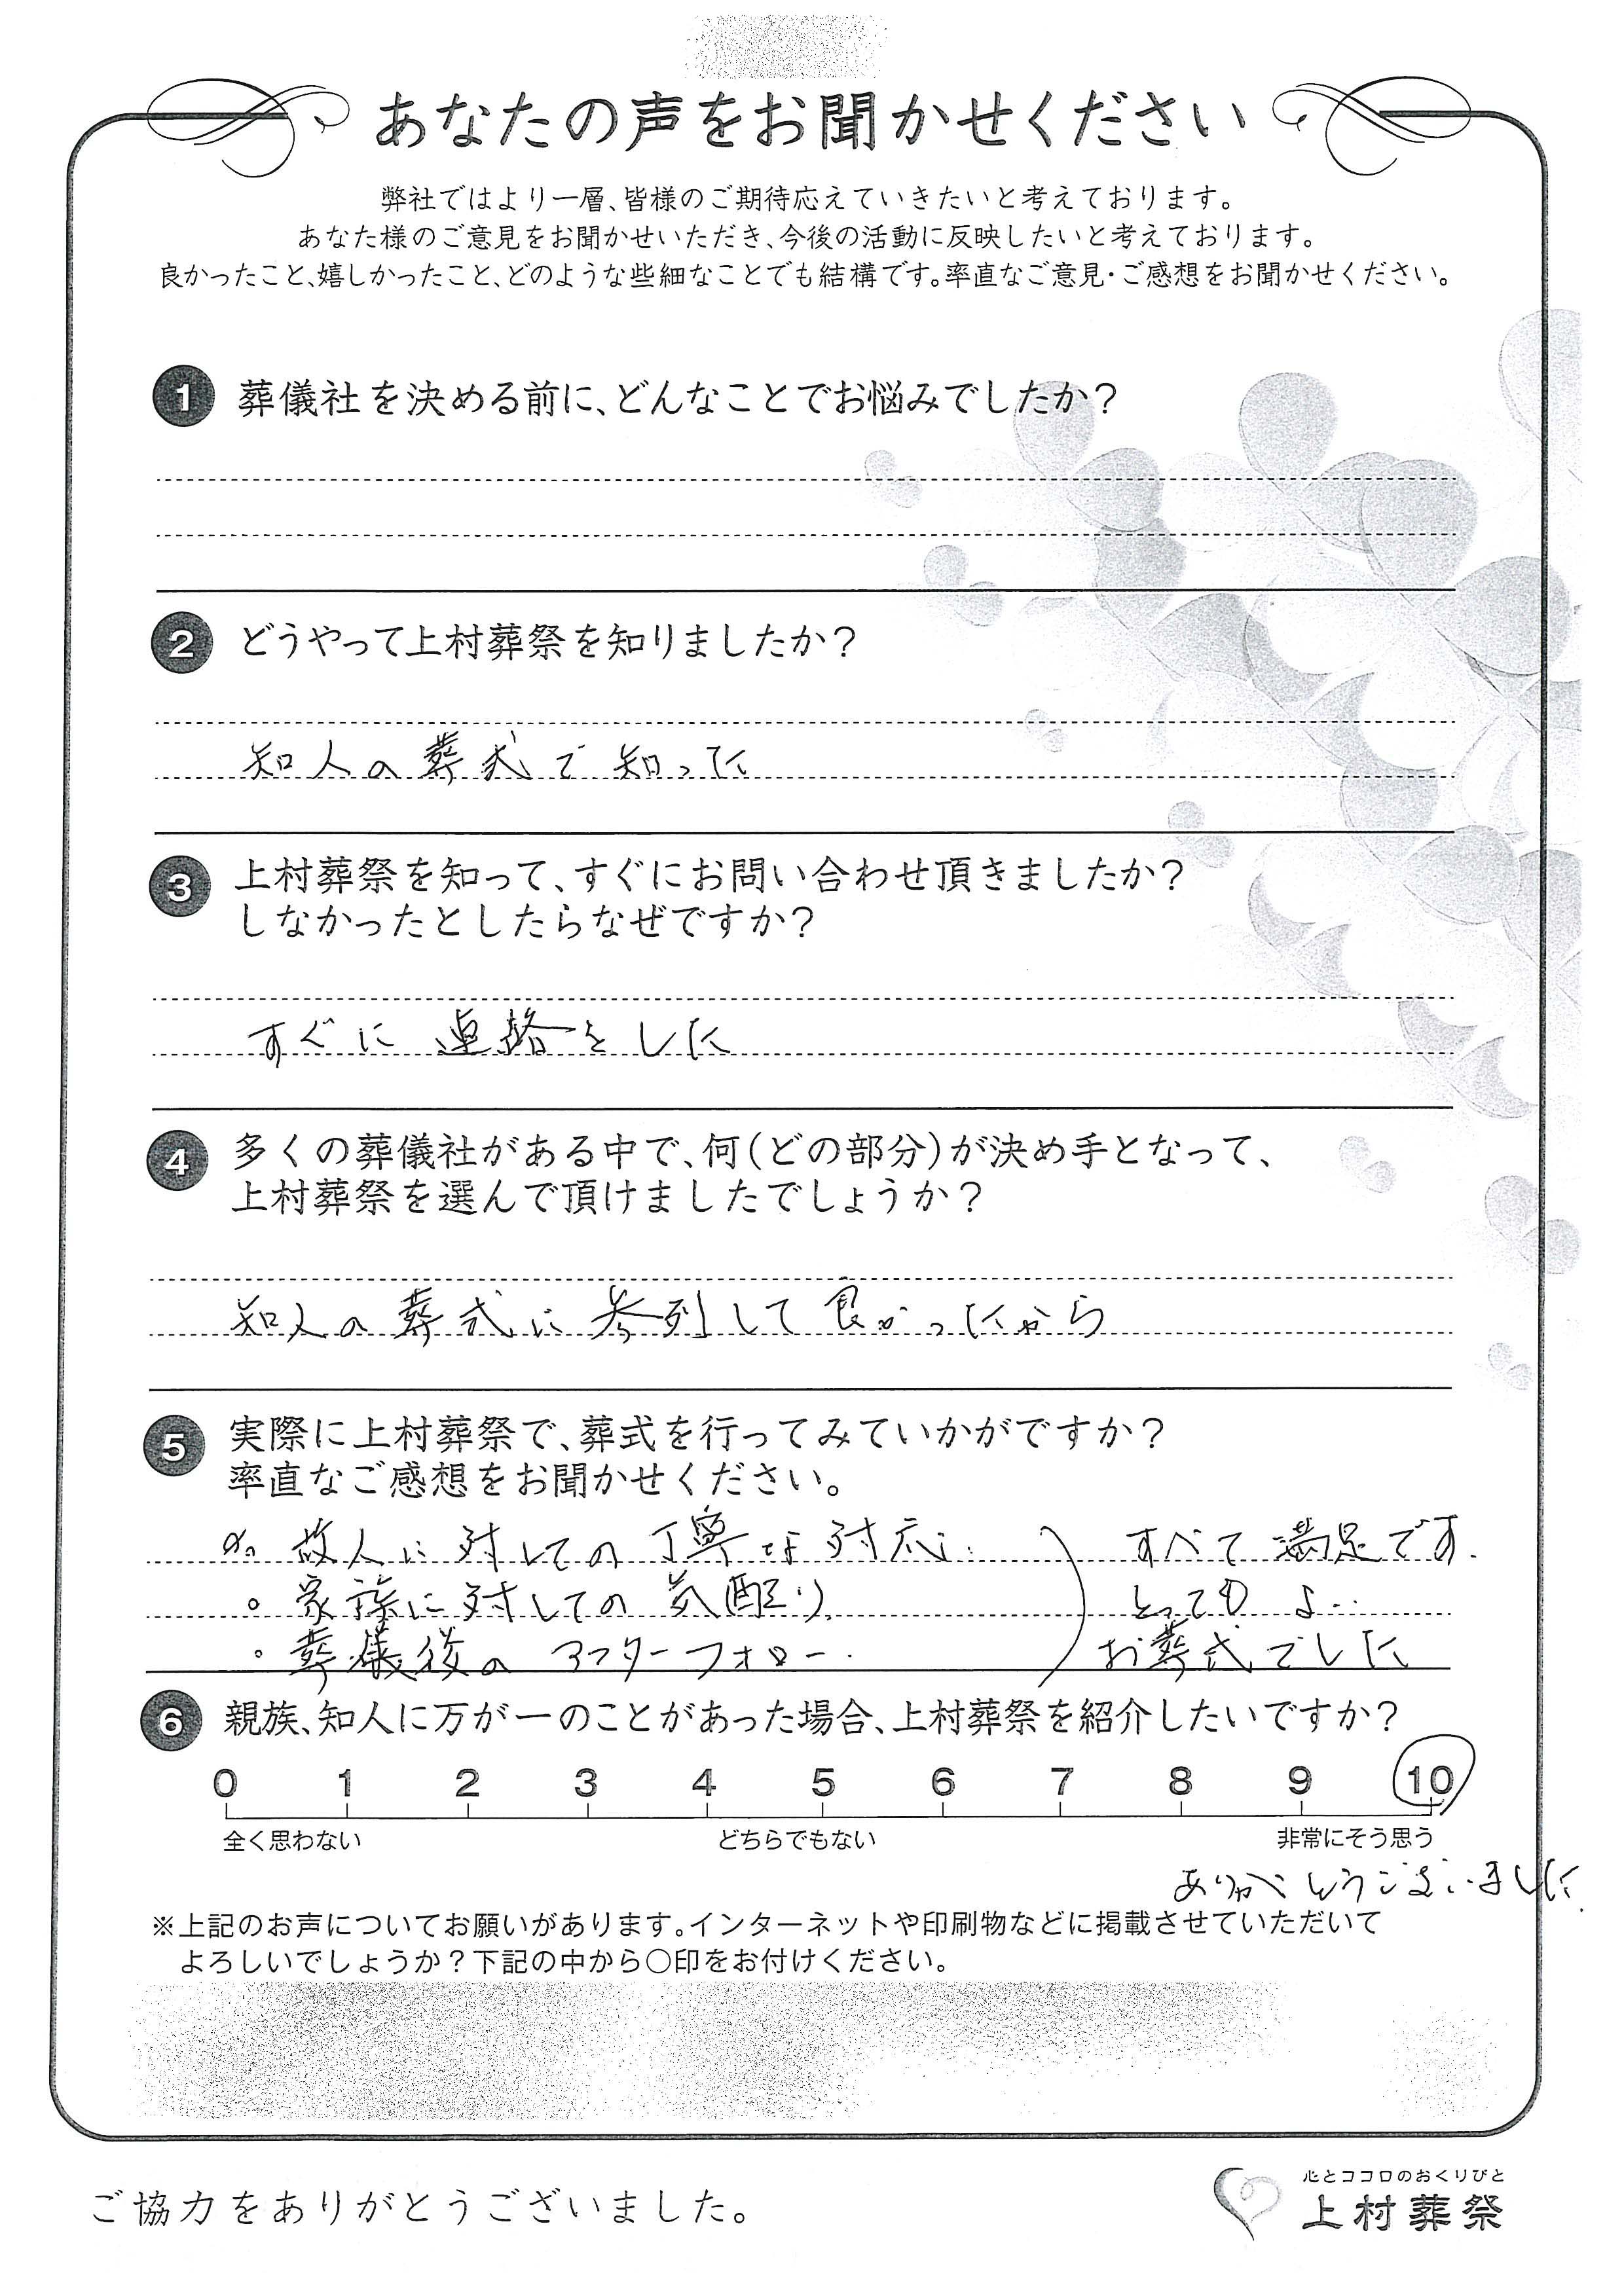 あなたの声をお聞かせください
弊社ではより一層、皆様のご期待応えていきたいと考えております。
あなた様のご意見をお聞かせいただき、今後の活動に反映したいと考えております。
良かったこと、嬉しかったこと、どのような些細なことでも結構です。率直なご意見・ご感想をお聞かせください。
1 葬儀社を決める前に、どんなことでお悩みでしたか?
2 どうやって上村葬祭を知りましたか?
知人の葬式で知った
3 上村葬祭を知って、すぐにお問い合わせ頂きましたか?
しなかったとしたらなぜですか?
すぐに連絡をした
4 多くの葬儀社がある中で、何(どの部分)が決め手となって、
上村葬祭を選んで頂けましたでしょうか?
知人の葬式に参列して良かったから
5 実際に上村葬祭で、葬式を行ってみていかがですか?
率直なご感想をお聞かせください。
故人に対しての丁寧な対応 すべて満足です.
。家族に対しての気配り とってもよい
・葬儀後のアフターフォロー. お葬式でした
6 親族、知人に万が一のことがあった場合、上村葬祭を紹介したいですか?
0 1 2 3 4 5 6 7 8 9 10
全く思わない どちらでもない 非常にそう思う
ありがとうございました.
※上記のお声についてお願いがあります。インターネットや印刷物などに掲載させていただいて
よろしいでしょうか?下記の中から○印をお付けください。
ご協力をありがとうございました。
心とココロのおくりびと
上村葬祭